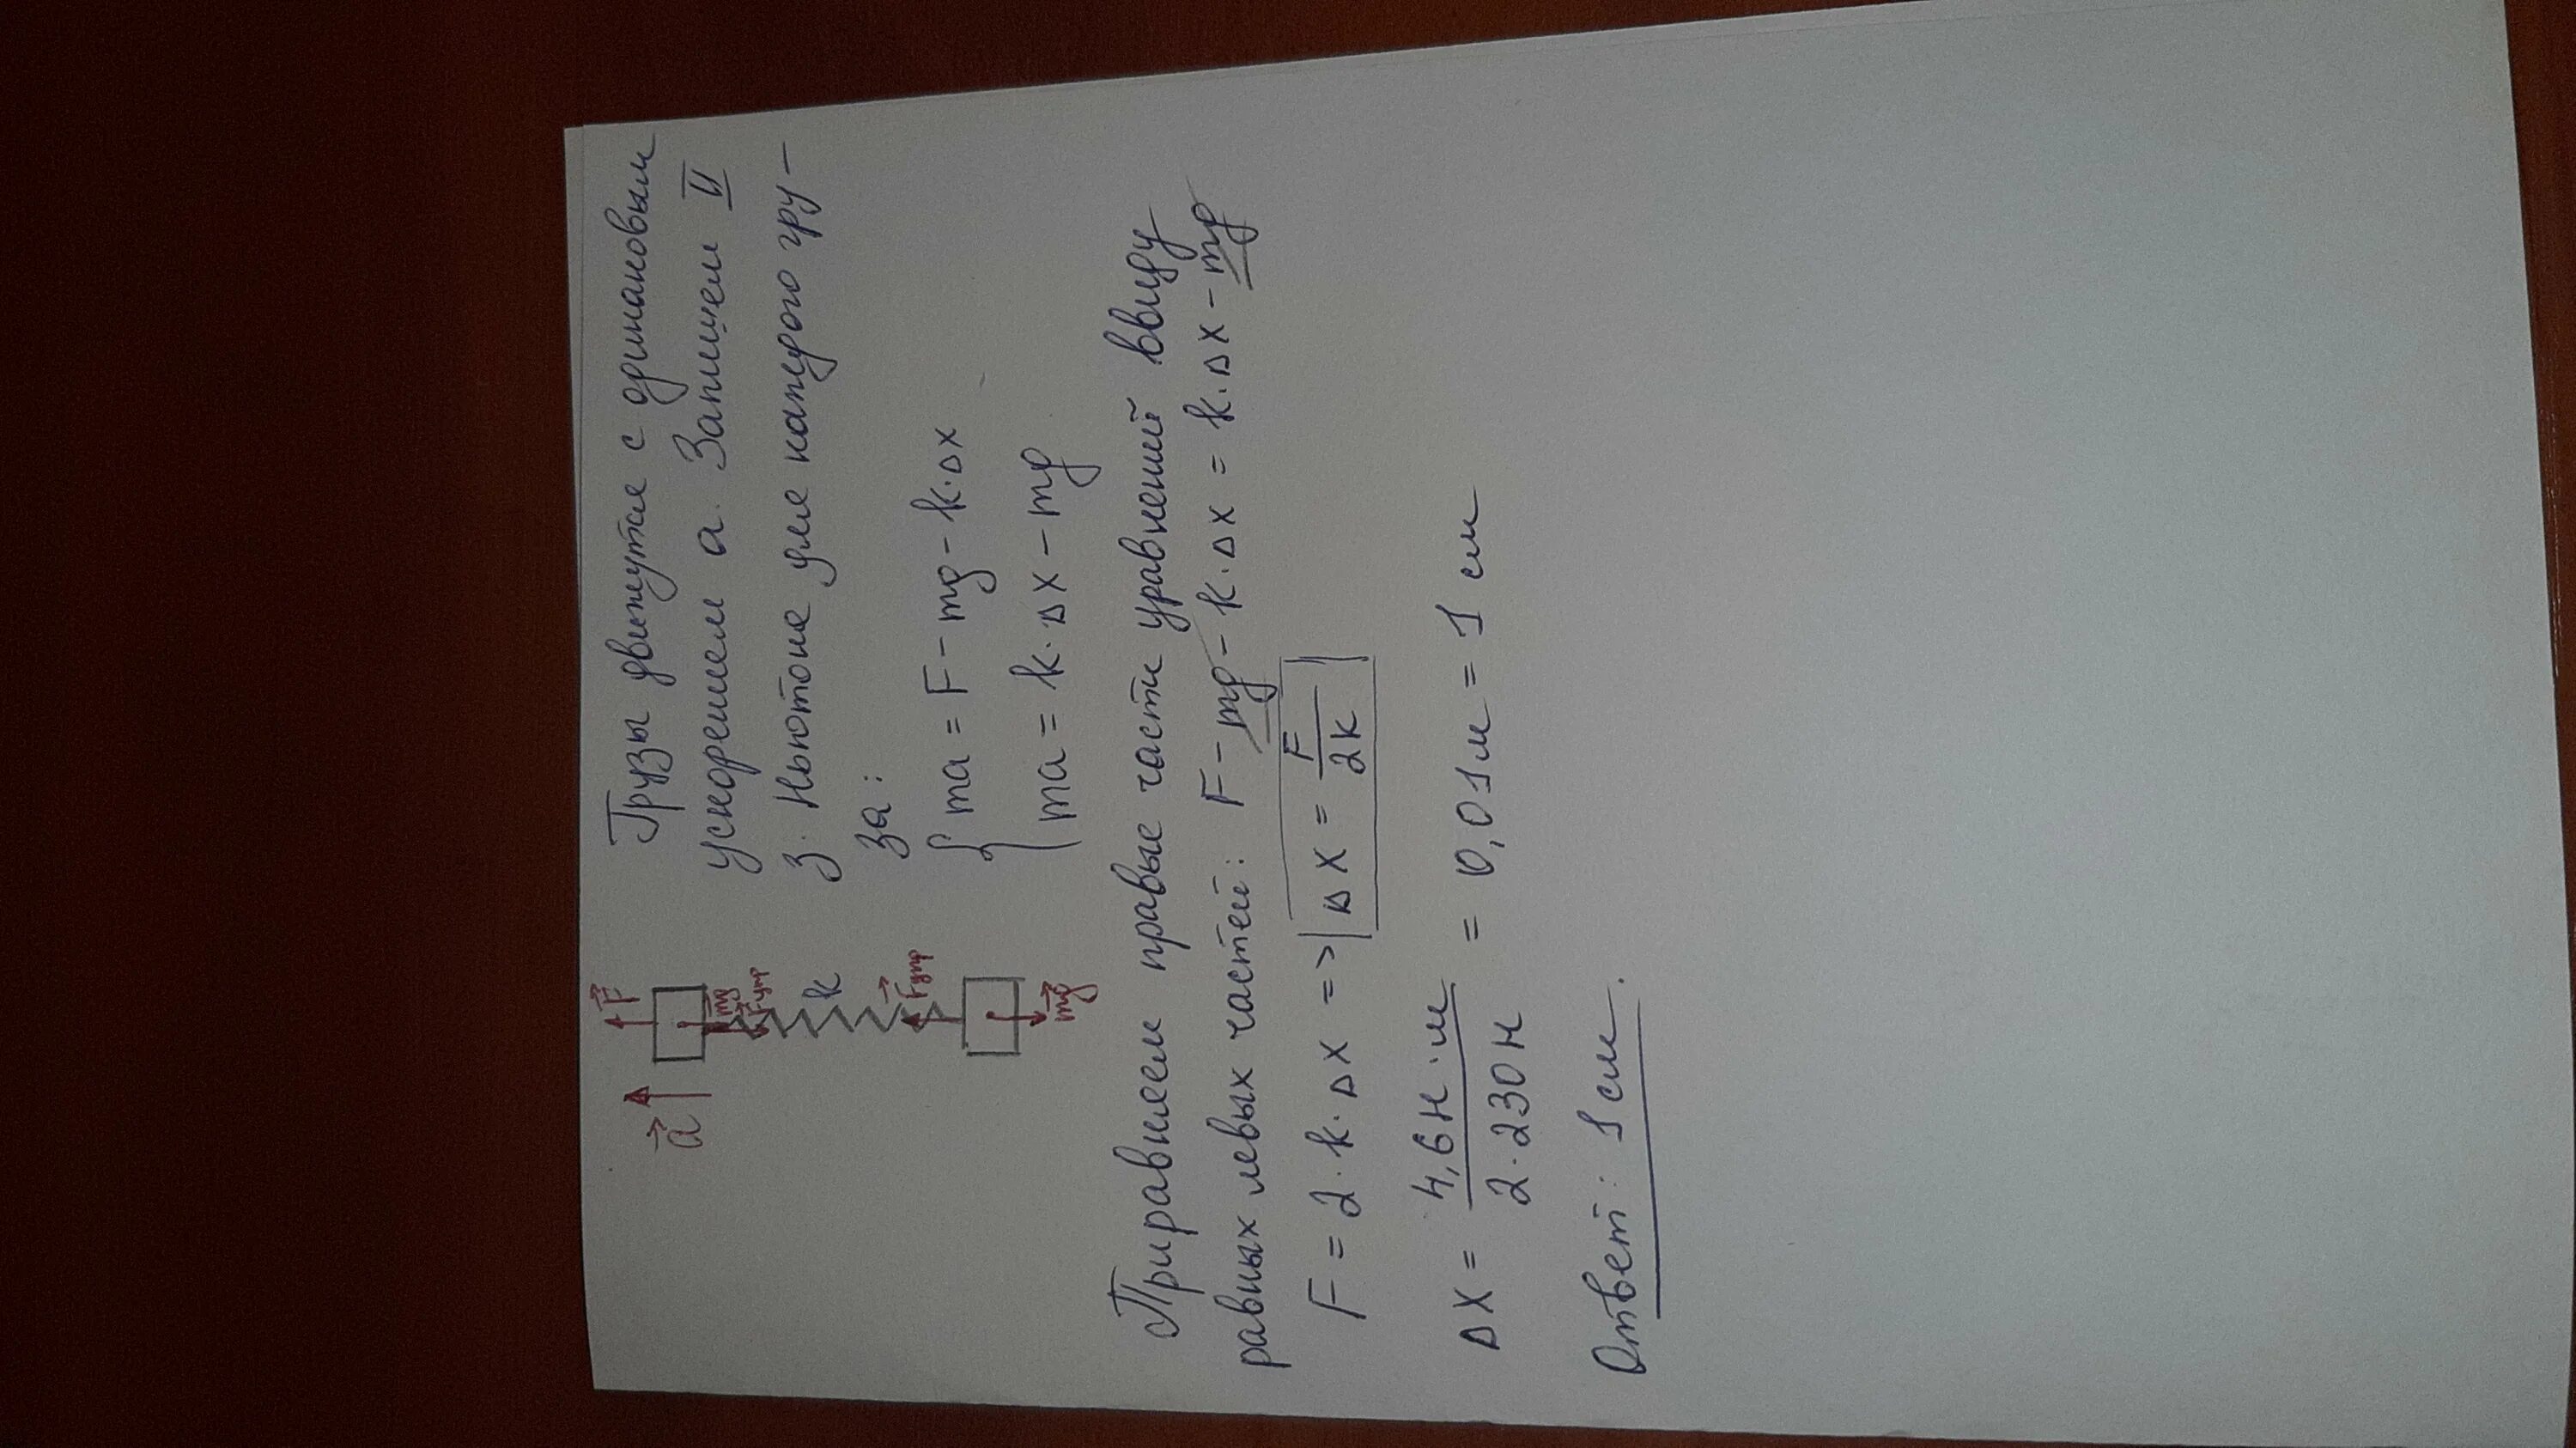 Грузы движутся с одинаковым
ускорением а. Запишем II
з. Ньютона для каждого гру-
за:
ma = F - mg - k·Δx
ma = k·Δx - mg
a
F
mg
Fупр
k
Fупр
mg
Приравняем правые части уравнений ввиду
равных левых частей: F - mg - k·Δx = k·Δx - mg
F = 2·k·Δx => Δx = F/2k
Δx = 4,6Н·м/2·230Н = 0,01м = 1 см
Ответ: 1 см.